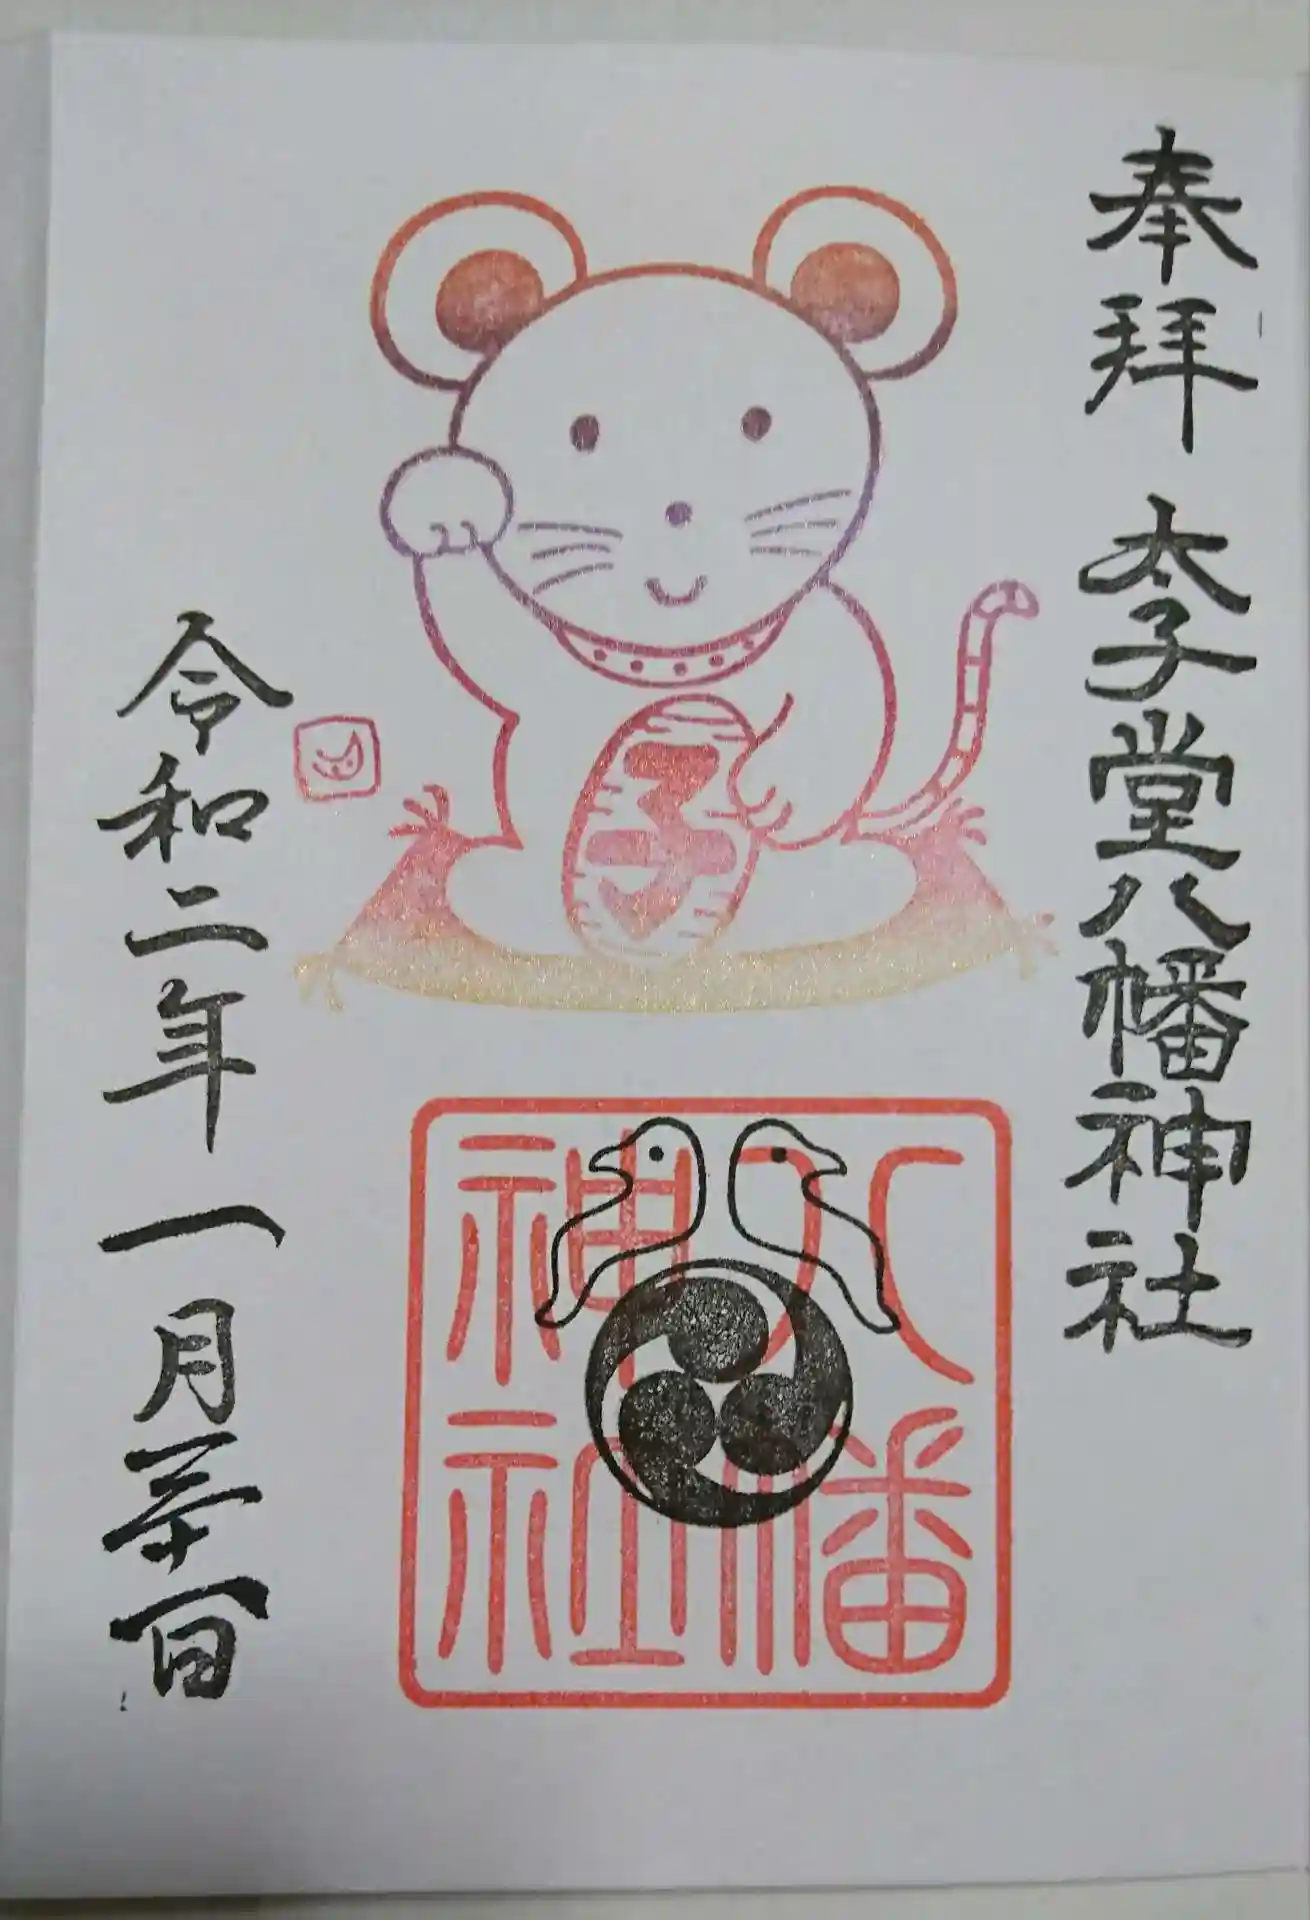 奉拝 太子堂八幡神社
子
八幡
神社
令和二年一月三十一日